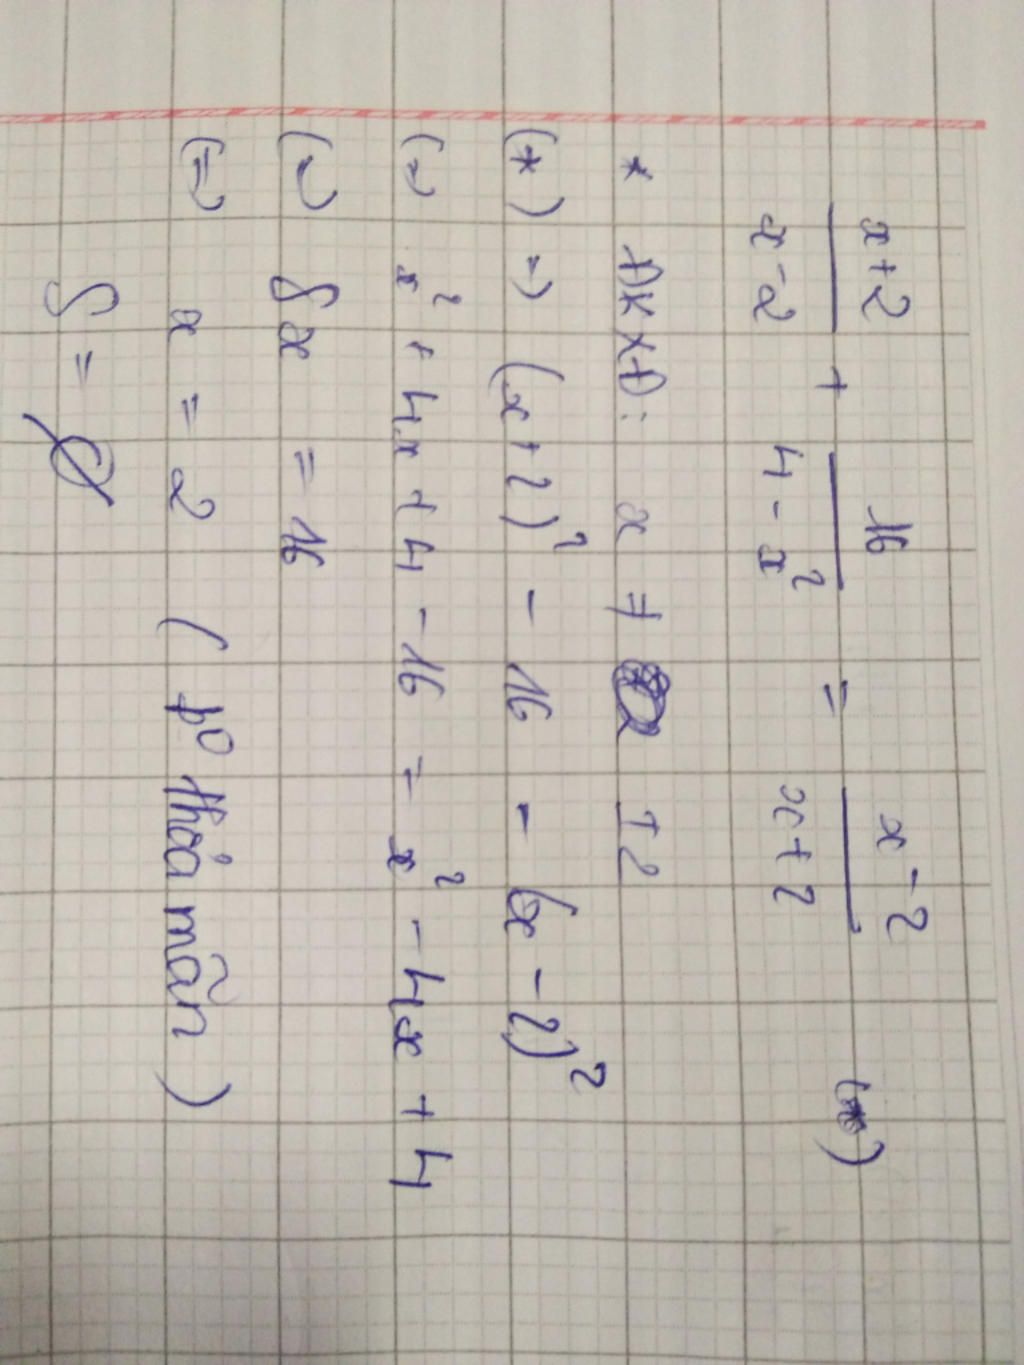 x+2/x-2 + 16/4-x² = x-2/x+2 (*)
* ĐKXĐ: x ≠ ±2
(*) => (x+2)² - 16 - (x-2)²
(=) x² + 4x + 4 - 16 = x² - 4x + 4
(=) 8x = 16
(=) x = 2 ( ko thoả mãn )
S = ∅